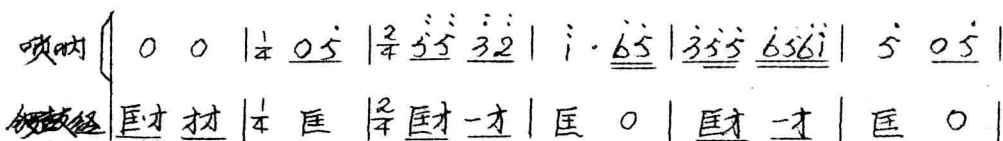 唢呐 0 0 | 1/4 0 5̇ | 2/4 5̇ 5̇ 3̇ 2̇ | 1̇ · 6̇ 5̇ | 3̇ 5̇ 5̇ 6̇ 5̇ 6̇ 1̇ | 5̇ 0 5̇ |
锣鼓经 匡才 才才 | 1/4 匡 | 2/4 匡才 一才 | 匡 0 | 匡才 一才 | 匡 0 |